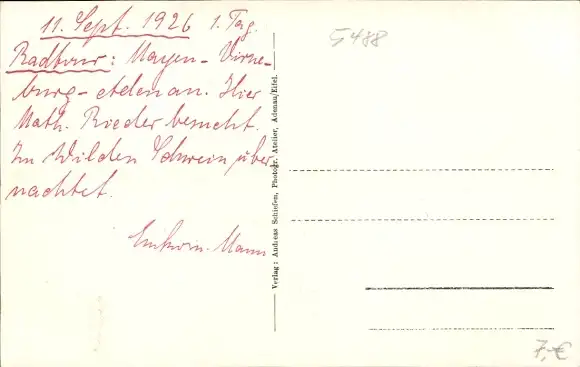 11. Sept. 1926 1. Tag.
Radtour: Mayen - Virne-
burg - Adenau. Hier
Math. Rieder besucht.
Im Wilden Schwein über
nachtet.
Mann
5488
Verlag: Andreas Schiefen, Photogr. Atelier, Adenau/Eifel.
7,-€